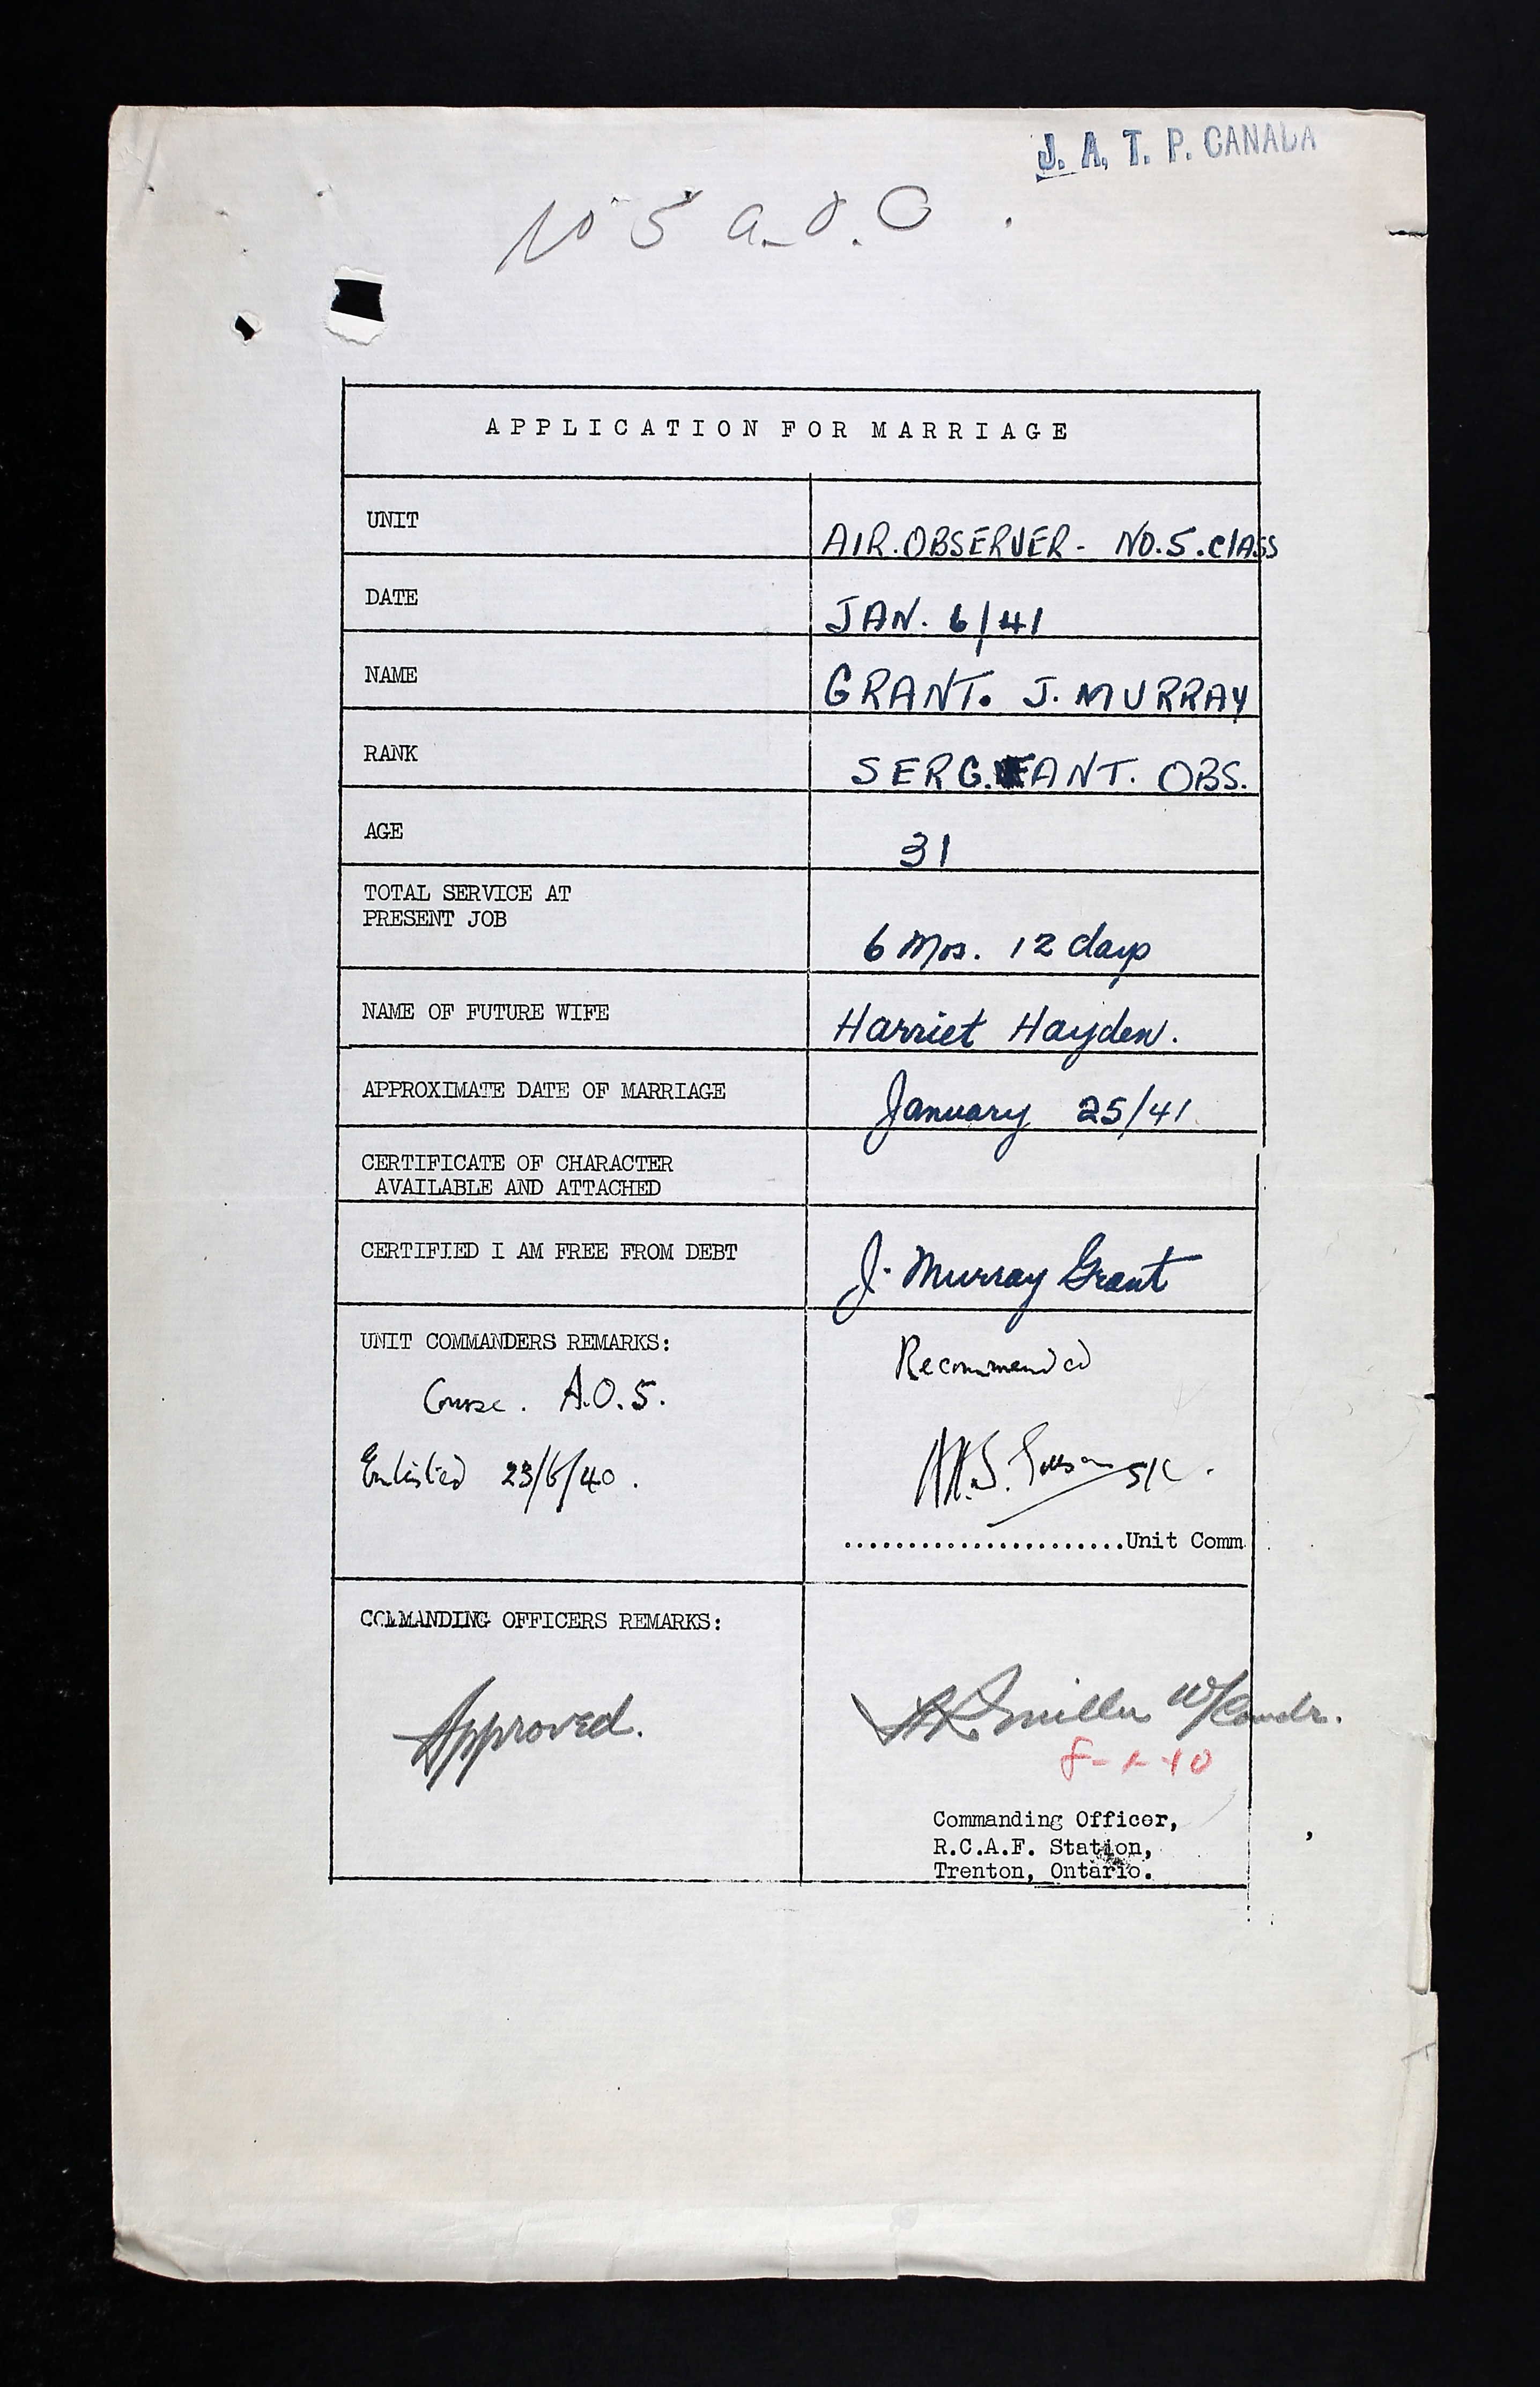 J. A. T. P. CANADA
No 5 a.o.O
APPLICATION FOR MARRIAGE
UNIT
AIR.OBSERVER - NO.5.ClASS
DATE
JAN. 6/41
NAME
GRANT. J. MURRAY
RANK
SERG.EANT. OBS.
AGE
31
TOTAL SERVICE AT
PRESENT JOB
6 Mos. 12 days
NAME OF FUTURE WIFE
Harriet Hayden.
APPROXIMATE DATE OF MARRIAGE
January 25/41
CERTIFICATE OF CHARACTER
AVAILABLE AND ATTACHED
CERTIFIED I AM FREE FROM DEBT
J. Murray Grant
UNIT COMMANDERS REMARKS:
Course. A.O.S.
Enlisted 23/6/40.
Recommended
.......................Unit Comm
COMMANDING OFFICERS REMARKS:
Approved.
Miller W/Comdr.
Commanding Officer,
R.C.A.F. Station,
Trenton, Ontario.